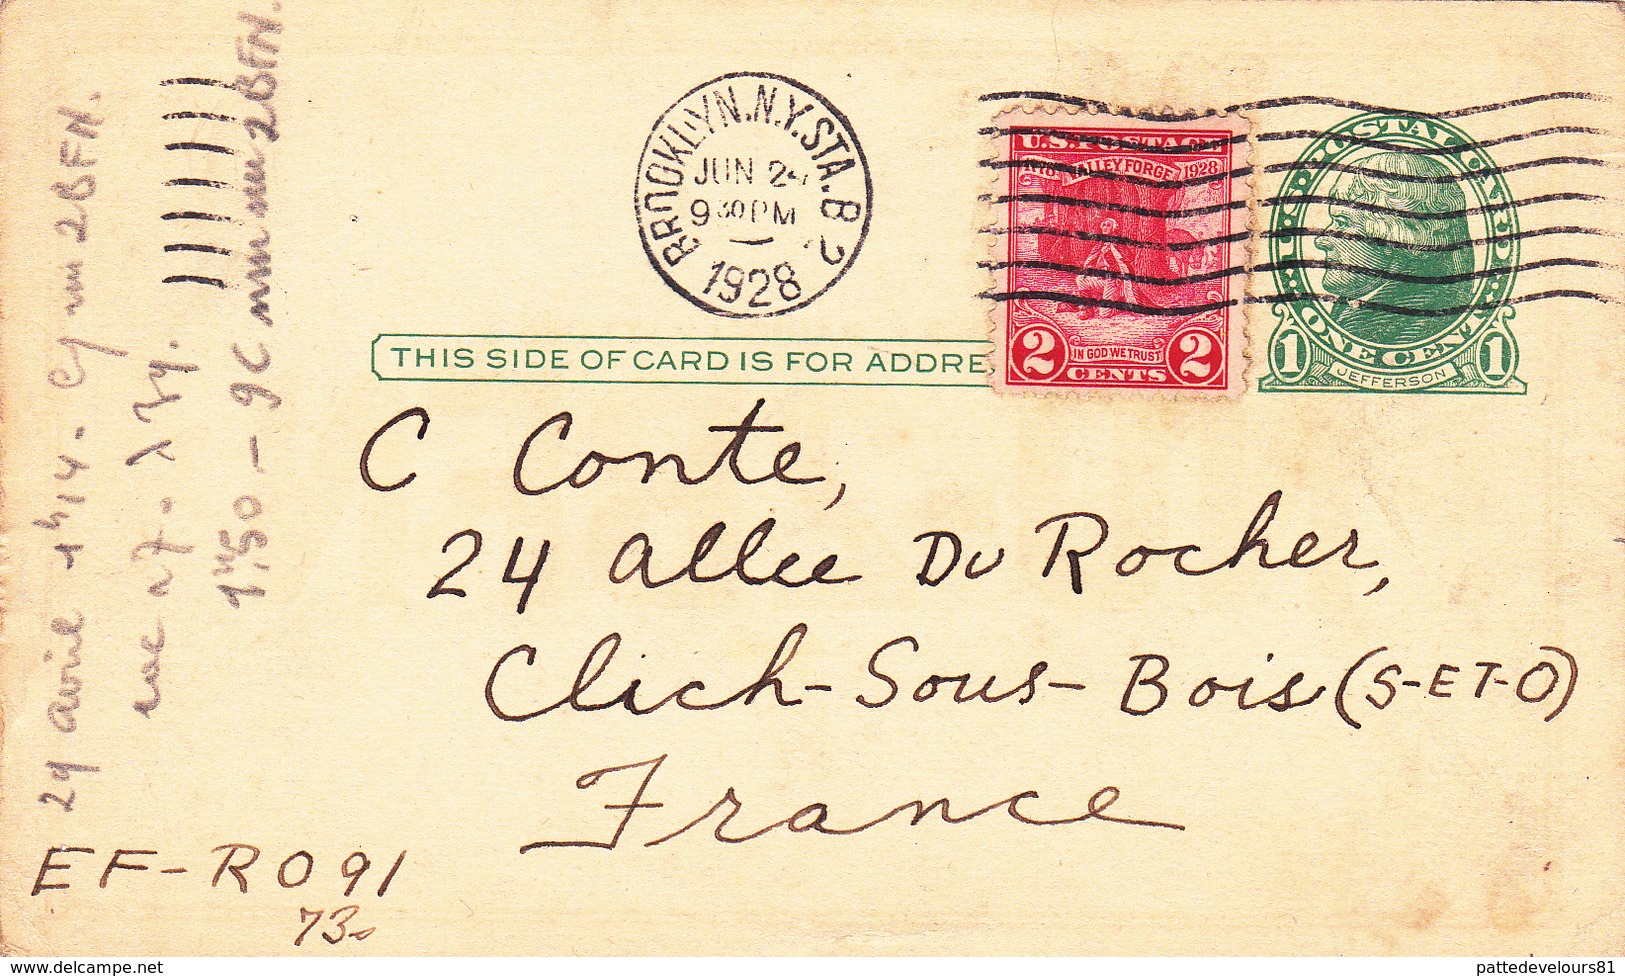 BROOKLYN, N.Y. STA. B 2
JUN 24
9 30 PM
1928
U.S. POSTAGE
1778 VALLEY FORGE 1928
IN GOD WE TRUST
2 CENTS 2
U.S. POSTAL CARD
1 ONE CENT 1
JEFFERSON
THIS SIDE OF CARD IS FOR ADDRE
C Conte,
24 allee Du Rocher,
Clich-Sous-Bois (S-ET-O)
France
EF-R091
73
29 avril
1,50 - 9C
2BFN.
www.delcampe.net
pattedevelours81